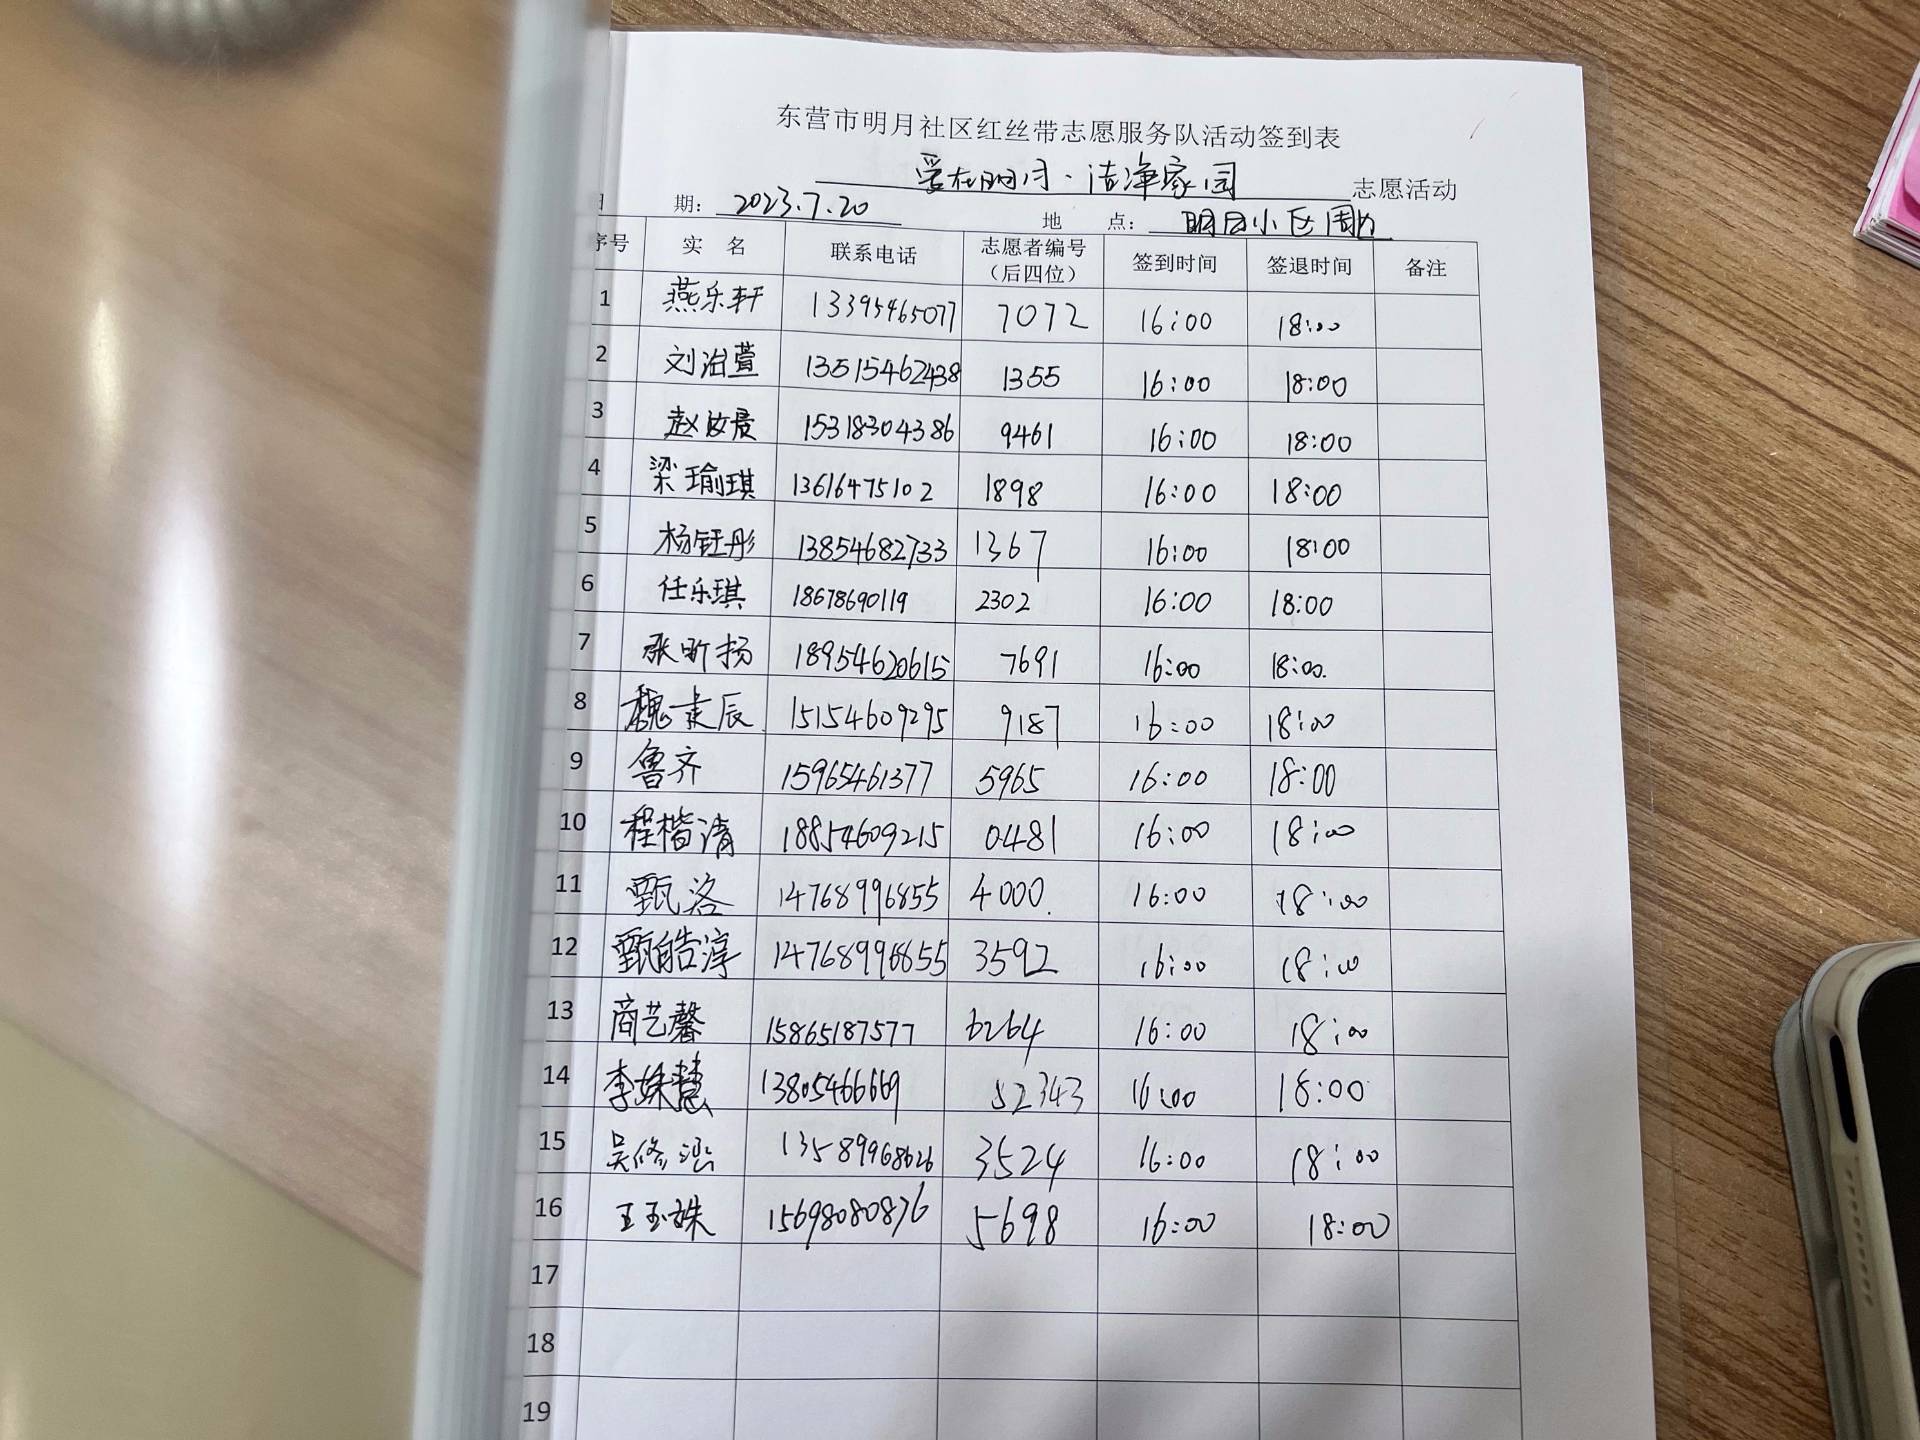 东营市明月社区红丝带志愿服务队活动签到表
爱在明月·洁净家园 志愿活动
日 期: 2023.7.20 地 点: 明月小区周边
序号 实 名 联系电话 志愿者编号(后四位) 签到时间 签退时间 备注
1 燕乐轩 13395465077 7072 16:00 18:00
2 刘治萱 13515462438 1355 16:00 18:00
3 赵晨 15318304386 9461 16:00 18:00
4 梁瑜琪 13616475102 1898 16:00 18:00
5 杨钰彤 13854682733 1367 16:00 18:00
6 任乐琪 18678690119 2302 16:00 18:00
7 张昕扬 18954620615 7691 16:00 18:00.
8 魏辰 15154609295 9187 16:00 18:00
9 鲁齐 15965461377 5965 16:00 18:00
10 程楷清 18854609215 0481 16:00 18:00
11 甄洛 14768996855 4000. 16:00 18:00
12 甄皓淳 14768996855 3592 16:00 18:00
13 商艺馨 15865187577 6264 16:00 18:00
14 李姝慧 13805466669 52343 16:00 18:00
15 吴修泓 13589968626 3524 16:00 18:00
16 王玉姝 15698080876 5698 16:00 18:00
17
18
19